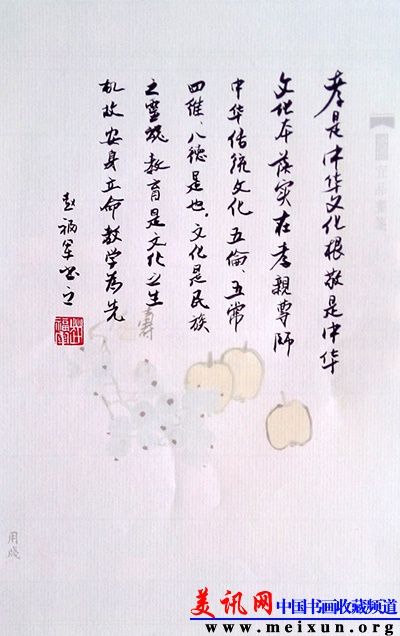 孝是中华文化根敬是中华
文化本落实在孝親尊師
中华传统文化五倫、五常
四維、八德是也。文化是民族
之靈魂教育是文化之生
机故安身立命教学為先
赵福军书之
用笺
美讯网 中国书画收藏频道
www.meixun.org